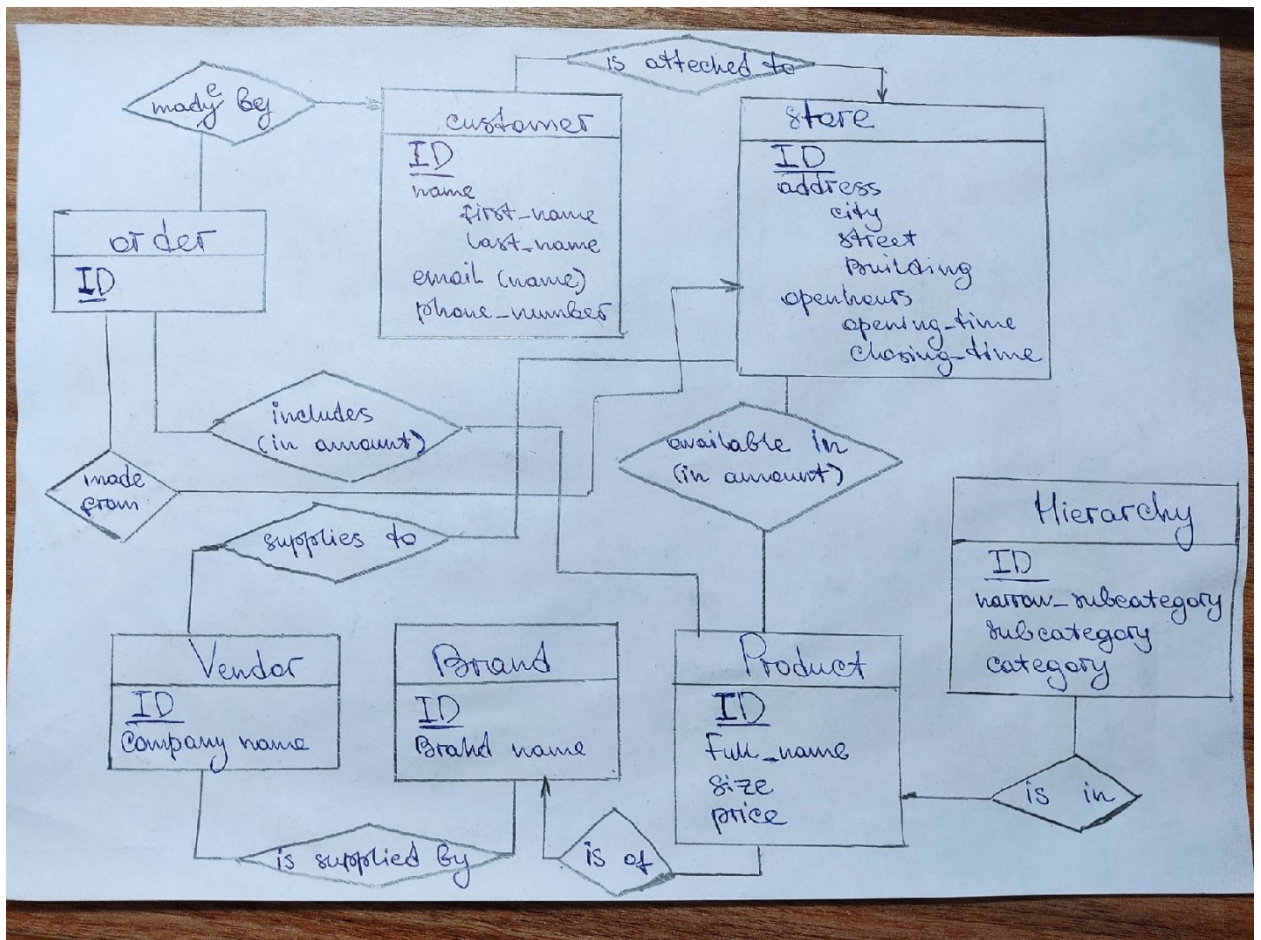 is atteched to
madye by
customer
ID
name
first_name
last_name
email (name)
phone_number
store
ID
address
city
street
Building
openhours
opening_time
chosing_time
order
ID
includes
(in amount)
available in
(in amount)
made
from
supplies to
Hierarchy
ID
narrow_subcategory
subcategory
category
Vendor
ID
Company name
Brand
ID
Brand name
Product
ID
Full_name
size
price
is in
is supplied by
is of